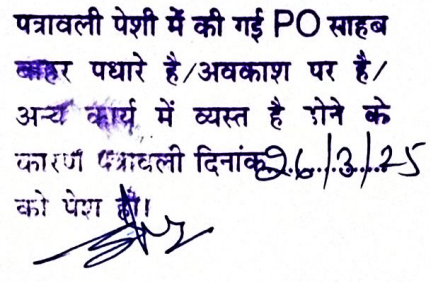 पत्रावली पेशी में की गई PO साहब
बाहर पधारे है/अवकाश पर है/
अन्य कार्य में व्यस्त है होने के
कारण पत्रावली दिनांक 26/3/25
को पेश हो।